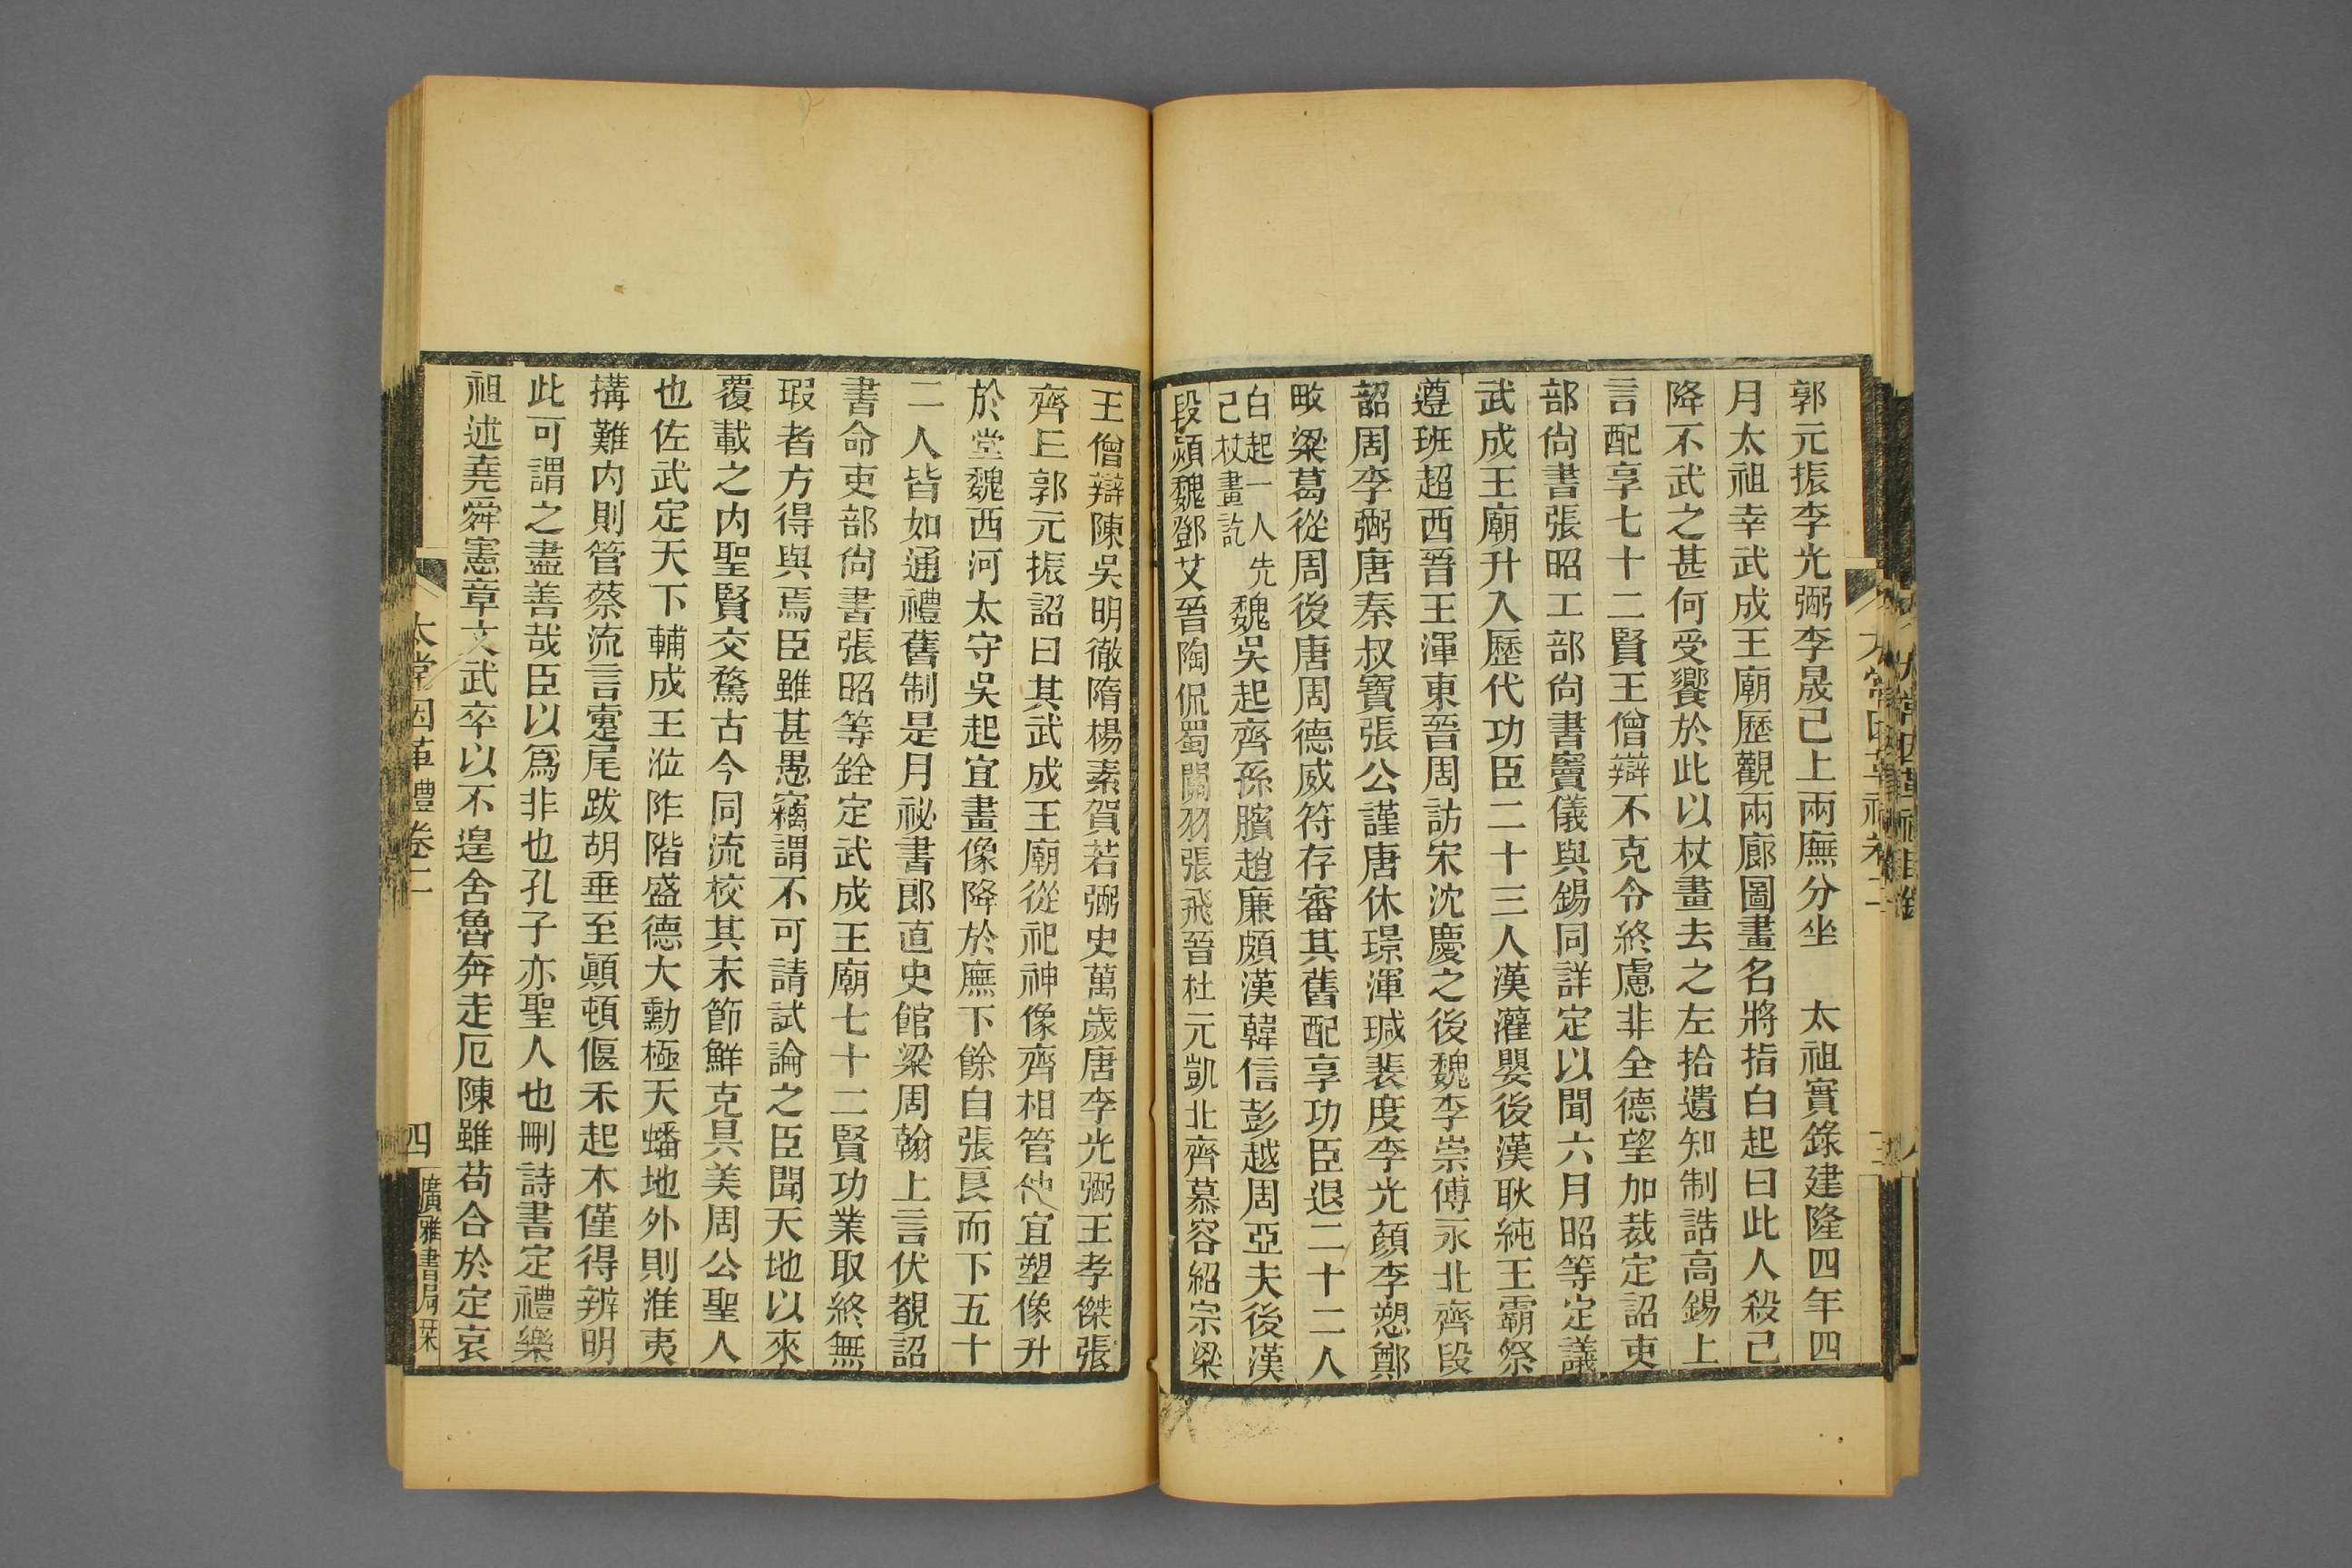 郭元振李光弼李晟已上兩廡分坐　太祖實錄建隆四年四
月太祖幸武成王廟歷觀兩廊圖畫名將指白起曰此人殺已
降不武之甚何受饗於此以杖畫去之左拾遺知制誥高錫上
言配享七十二賢王僧辯不克令終慮非全德望加裁定詔吏
部尙書張昭工部尙書竇儀與錫同詳定以聞六月昭等定議
武成王廟升入歷代功臣二十三人漢灌嬰後漢耿純王霸祭
遵班超西晉王渾東晉周訪宋沈慶之後魏李崇傅永北齊段
韶周李弼唐秦叔寶張公謹唐休璟渾瑊裴度李光顏李愬鄭
畋梁葛從周後唐周德威符存審其舊配享功臣退二十二人
白起一人先
已杖畫訖
魏吳起齊孫臏趙廉頗漢韓信彭越周亞夫後漢
段熲魏鄧艾晉陶侃蜀關羽張飛晉杜元凱北齊慕容紹宗梁
王僧辯陳吳明徹隋楊素賀若弼史萬歲唐李光弼王孝傑張
齊丘郭元振詔曰其武成王廟從祀神像齊相管仲宜塑像升
於堂魏西河太守吳起宜畫像降於廡下餘自張良而下五十
二人皆如通禮舊制是月祕書郎直史館梁周翰上言伏覩詔
書命吏部尙書張昭等銓定武成王廟七十二賢功業取終無
瑕者方得與焉臣雖甚愚竊謂不可請試論之臣聞天地以來
覆載之內聖賢交騖古今同流校其末節鮮克具美周公聖人
也佐武定天下輔成王涖阼階盛德大勳極天蟠地外則淮夷
搆難內則管蔡流言疐尾跋胡垂至顚頓偃禾起木僅得辨明
此可謂之盡善哉臣以爲非也孔子亦聖人也刪詩書定禮樂
祖述堯舜憲章文武卒以不遑舍魯奔走厄陳雖苟合於定哀
太常因革禮卷二
四
廣雅書局栞